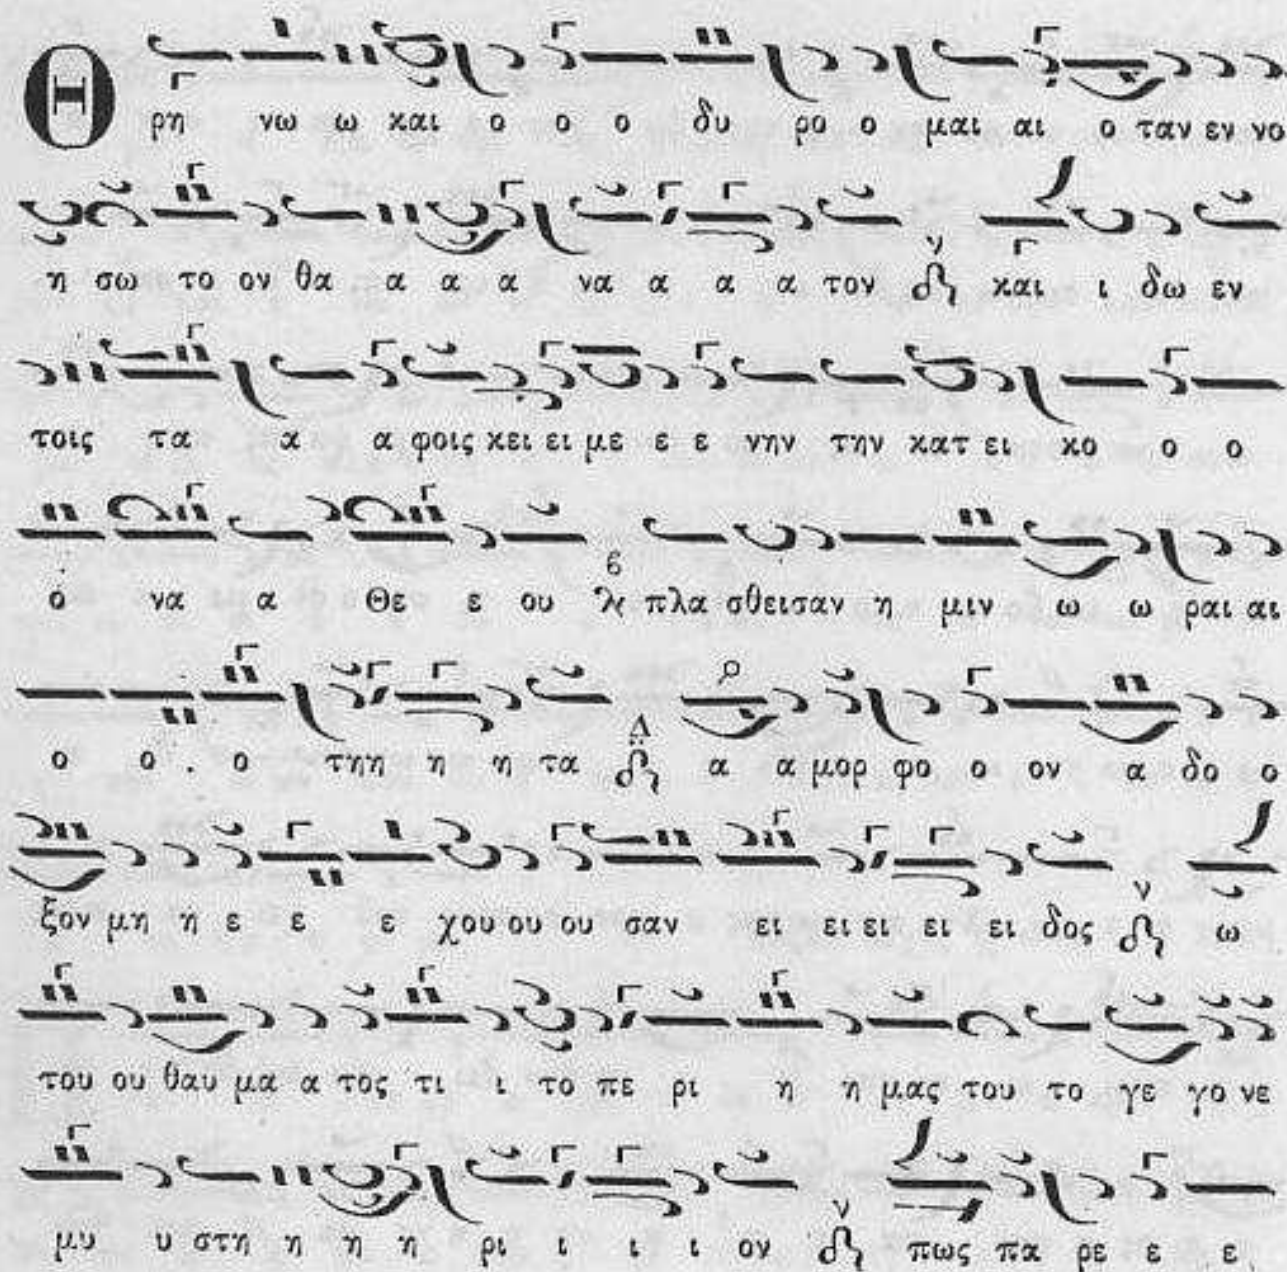 Θρη νω ω και ο ο ο δυ ρο ο μαι αι ο ταν εν νο
η σω το ον θα α α α να α α α τον ν και ι δω εν
τοις τα α α φοις κει ει με ε ε νην την κατ ει κο ο ο
ο να α Θε ε ου β πλα σθεισαν η μιν ω ω ραι αι
ο ο . ο τηη η η τα Δ α α μορ φο ο ον α δο ο
ξον μη η ε ε ε χου ου ου σαν ει ει ει ει ει δος ν ω
του ου θαυ μα α τος τι ι το πε ρι η η μας του το γε γο νε
μυ υ στη η η η ρι ι ι ι ον ν πως πα ρε ε ε